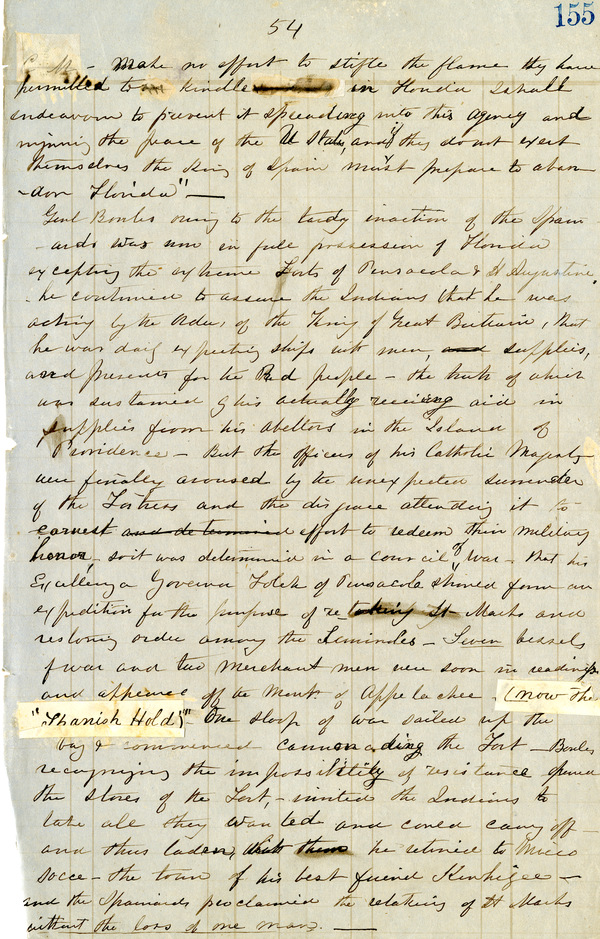 155
54
C. M - Make no effort to stifle the flame they have
permitted to kindle in Florida I shall
endeavour to prevent it spreading into this agency and
injuring the peace of the U States, and if they do not exert
themselves the King of Spain must prepare to aban
-don Florida" —
Genl Bowles owing to the tardy inaction of the Span-
-ards was now in full possession of Florida
excepting the extreme Forts of Pensacola & St Augustine
- he continued to assure the Indians that he was
acting by the order, of the King of Great Brittain, that
he was daily expecting ships with men, and supplies,
and presents for the Red people - the truth of which
was sustained by his actually receiving aid in
supplies from his abettors in the Island of
Providence - But the officers of his Catholic Majesty
were finally aroused by the unexpected surrender
of the Fortress and the disgrace attending it to
earnest and determined effort to redeem their military
honor, so it was determined in a council of War - that his
Excellency Governor Folch of Pensacola should form an
expedition for the purpose of re-taking St Marks and
restoring order among the Seminoles - Seven vessels
of war and two merchant men were soon in readiness
and appeared off the Mouth of Appelachee - (now the
"Spanish Hold)" - One sloop of war sailed up the
bay & commenced cannonading the Fort - Bowles
recognizing the impossibility of resistance opened
the stores of the Fort, - invited the Indians to
take all they wanted and could carry off -
and thus laden, he retired to Micco
socce - the town of his best friend Kenhigee -
and the Spaniards proclaimed the retaking of St Marks
without the loss of one man. —